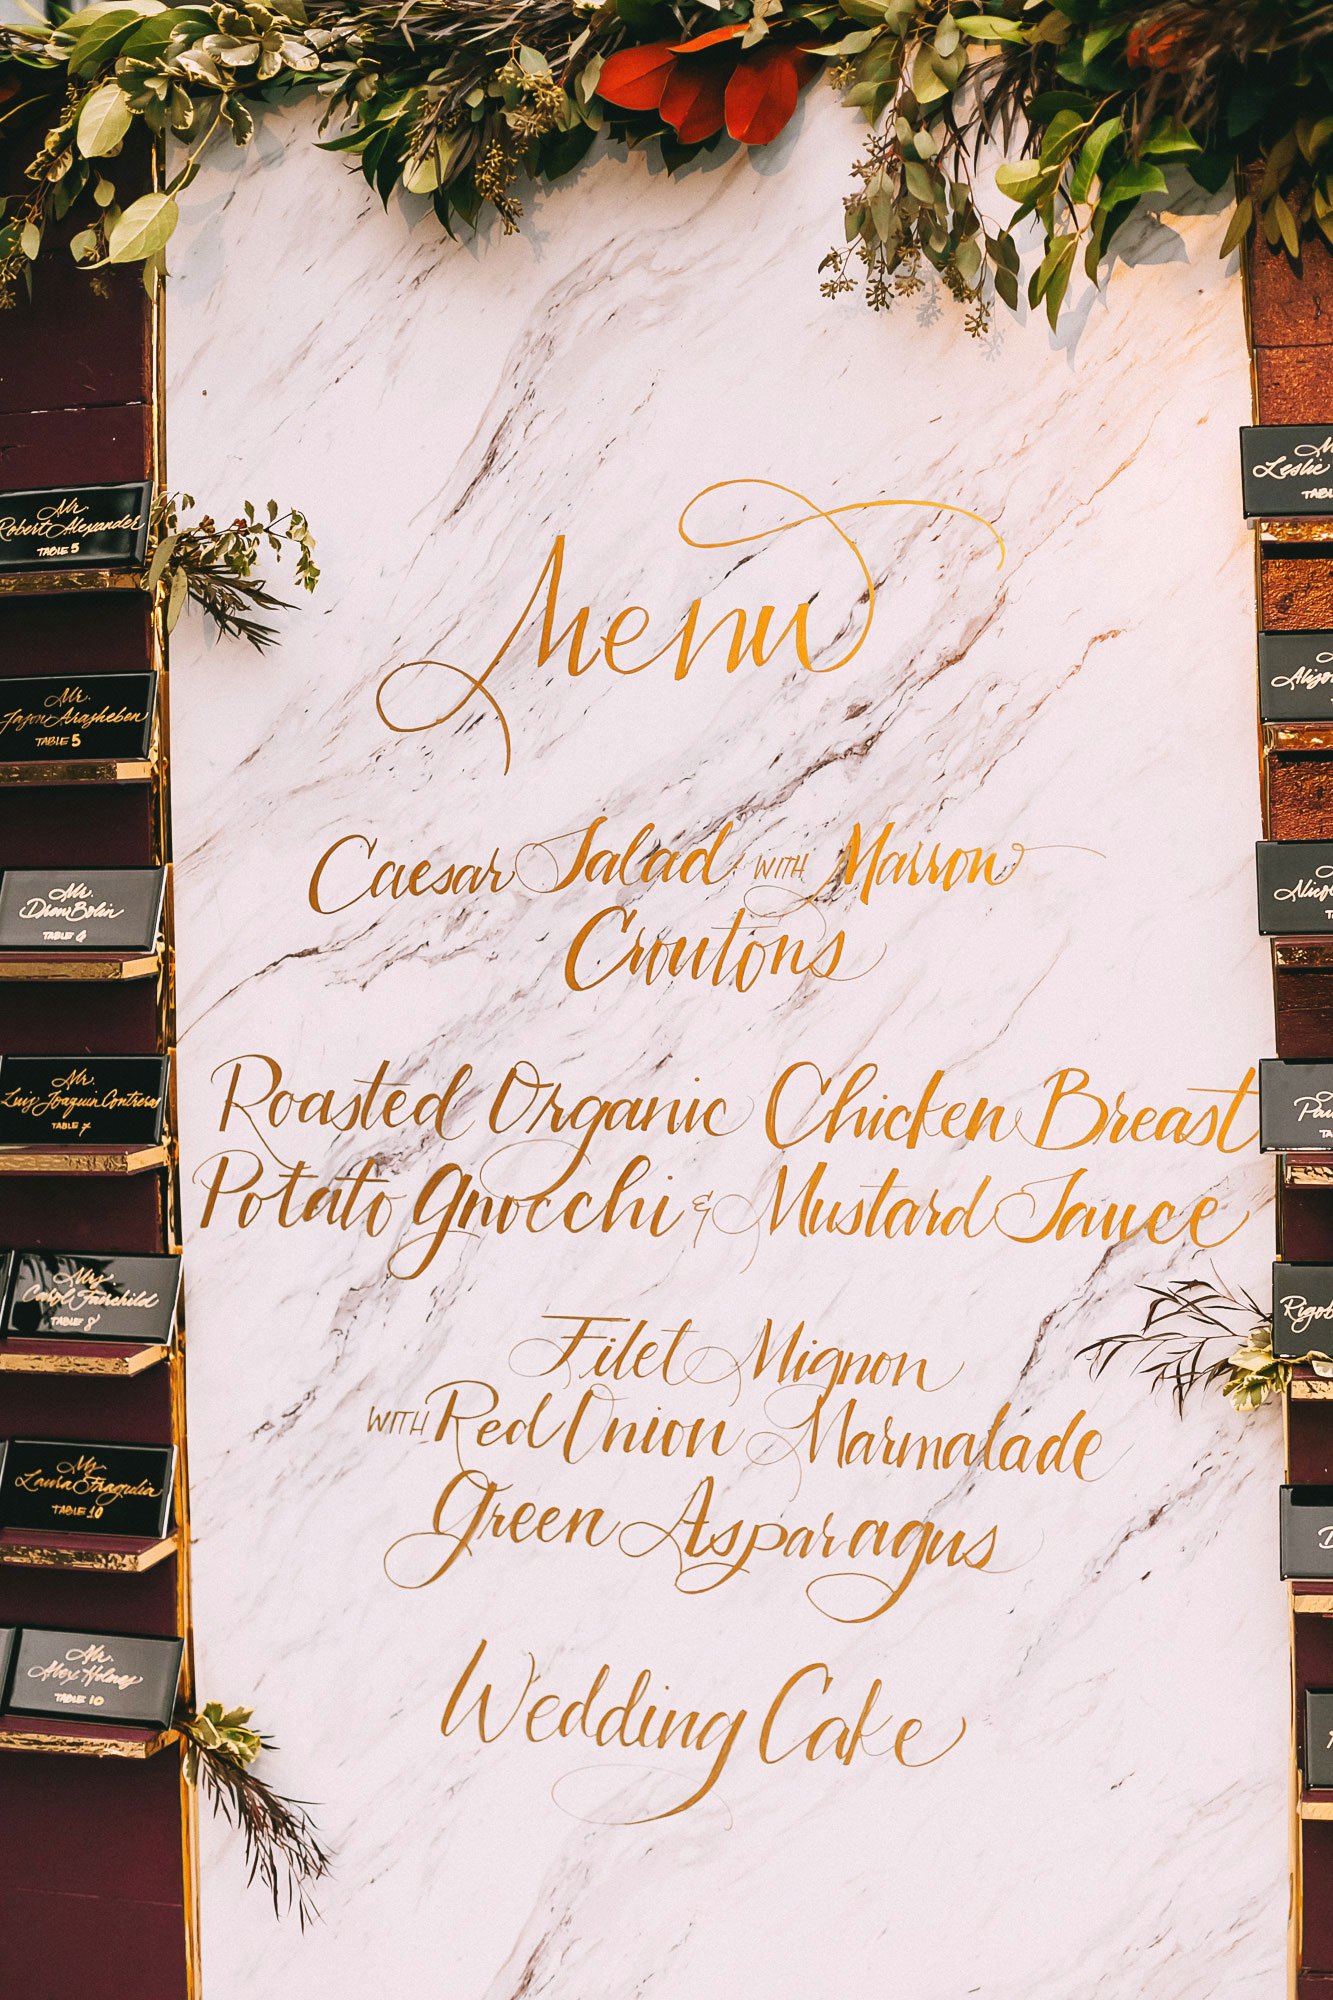 Menu
Caesar Salad WITH Marron
Croutons
Roasted Organic Chicken Breast
Potato Gnocchi & Mustard Sauce
Filet Mignon
WITH Red Onion Marmalade
Green Asparagus
Wedding Cake
Mr.
Robert Alexander
TABLE 5
Mr.
Jason Arasheben
TABLE 5
Mr.
Drew Bolin
TABLE
Mr.
Luis Joaquin Contreras
TABLE 7
Mrs.
Carol Fairchild
TABLE 8
Laura Fragulia
TABLE 10
Mr.
Alex Holmes
TABLE 10
Leslie